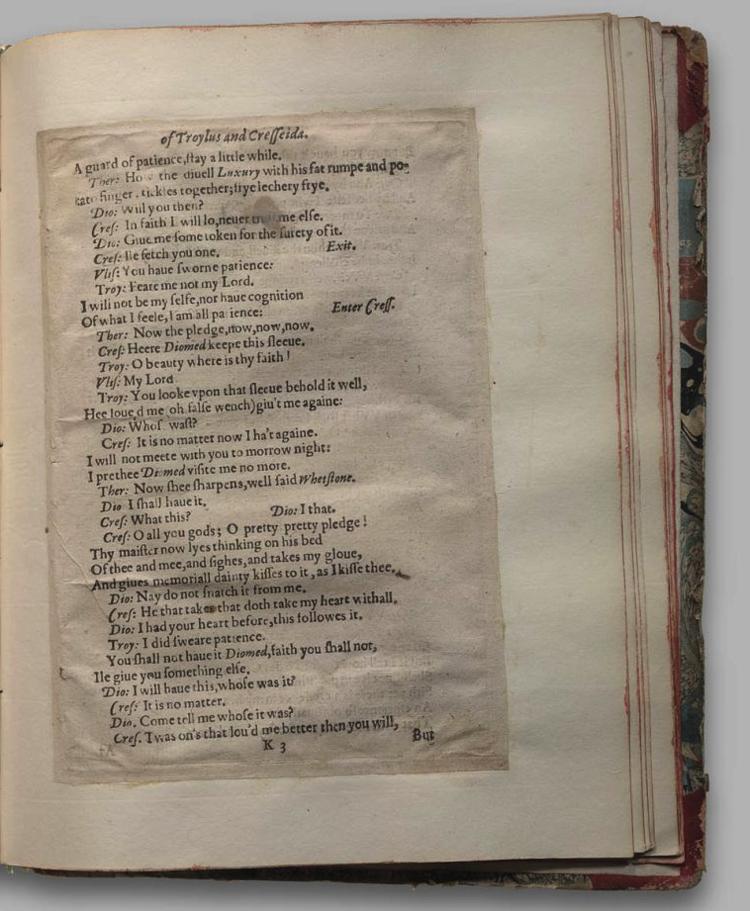 of Troylus and Cresseida.
A guard of patience, stay a little while.
Ther: How the diuell Luxury with his fat rumpe and po-
tato finger, tickles together; frye lechery frye.
Dio: Will you then?
Cres: In faith I will lo, neuer me else.
Dio: Giue me some token for the surety of it.
Cres: Ile fetch you one. Exit.
Vlis: You haue sworne patience:
Troy: Feare me not my Lord.
I will not be my selfe, nor haue cognition
Of what I feele, I am all patience: Enter Cress.
Ther: Now the pledge, now, now, now.
Cres: Heere Diomed keepe this sleeue.
Troy: O beauty where is thy faith!
Vlis: My Lord
Troy: You looke vpon that sleeue behold it well,
Hee loued me (oh false wench) giu't me againe:
Dio: Whos' wast?
Cres: It is no matter now I ha't againe.
I will not meete with you to morrow night:
I prethee Diomed visite me no more.
Ther: Now shee sharpens, well said Whetstone.
Dio I shall haue it.
Cres: What this? Dio: I that.
Cres: O all you gods; O pretty pretty pledge!
Thy maister now lyes thinking on his bed
Of thee and mee, and sighes, and takes my gloue,
And giues memoriall dainty kisses to it, as I kisse thee.
Dio: Nay do not snatch it from me.
Cres: He that takes that doth take my heart withall.
Dio: I had your heart before, this followes it.
Troy: I did sweare patience.
You shall not haue it Diomed, faith you shall not,
Ile giue you something else.
Dio: I will haue this, whose was it?
Cres: It is no matter.
Dio. Come tell me whose it was?
Cres. Twas on's that lou'd me better then you will,
K 3 But